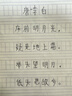 唐李白
床前明月光，
疑是地上霜。
举头望明月，
低头思故乡。